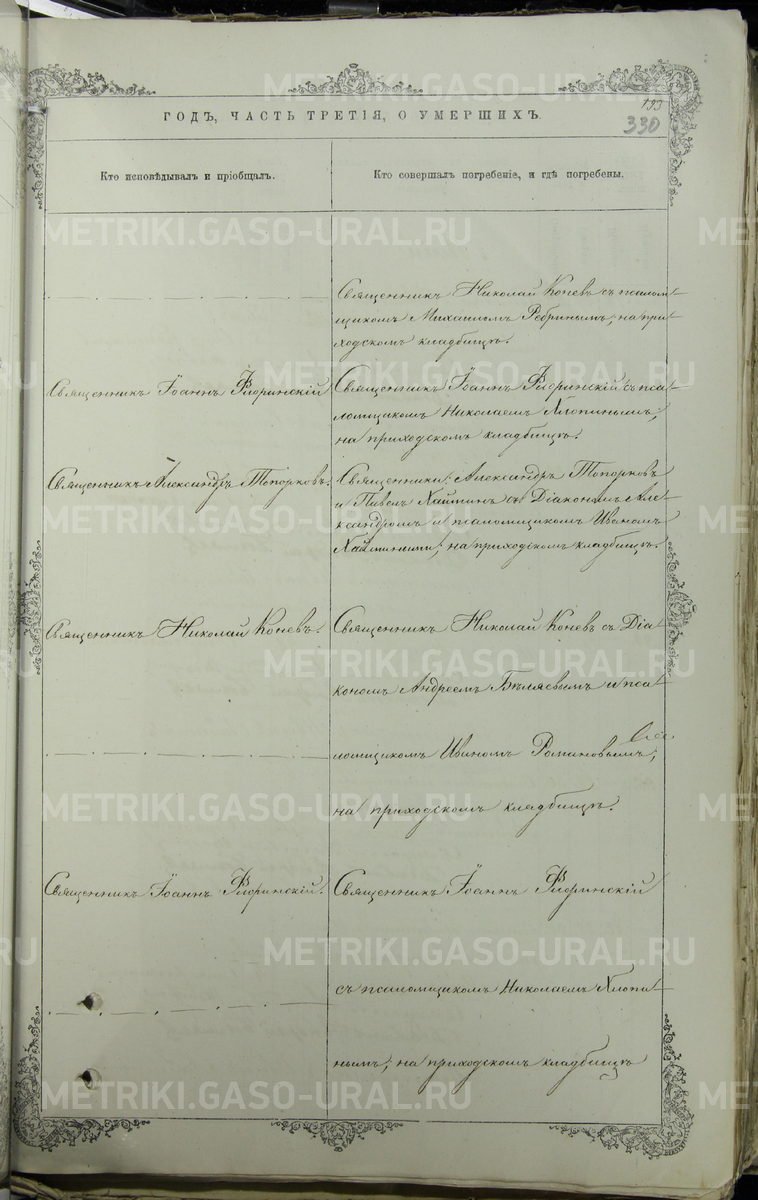 193
330
ГОДЪ, ЧАСТЬ ТРЕТІЯ, О УМЕРШИХЪ.
Кто исповѣдывалъ и пріобщалъ.
Кто совершалъ погребеніе, и гдѣ погребены.
Священникъ Николай Коневъ съ псалом-
щикомъ Михаиломъ Ребринымъ, на при-
ходскомъ кладбищѣ.
Священникъ Іоаннъ Флоринскій
Священникъ Іоаннъ Флоринскій съ пса-
ломщикомъ Николаемъ Хлопинымъ,
на приходскомъ кладбищѣ.
Священникъ Александръ Топорковъ.
Священники: Александръ Топорковъ
и Павелъ Хаминъ съ Діакономъ Але-
ксандромъ и псаломщикомъ Иваномъ
на приходскомъ кладбищѣ.
Священникъ Николай Коневъ.
Священникъ Николай Коневъ съ Діа-
кономъ Андреемъ Бѣляевымъ и пса-
ломщикомъ Иваномъ Романовымъ,
на приходскомъ кладбищѣ.
Священникъ Іоаннъ Флоринскій.
Священникъ Іоаннъ Флоринскій
съ псаломщикомъ Николаемъ Хлопи-
нымъ, на приходскомъ кладбищѣ
METRIKI.GASO-URAL.RU